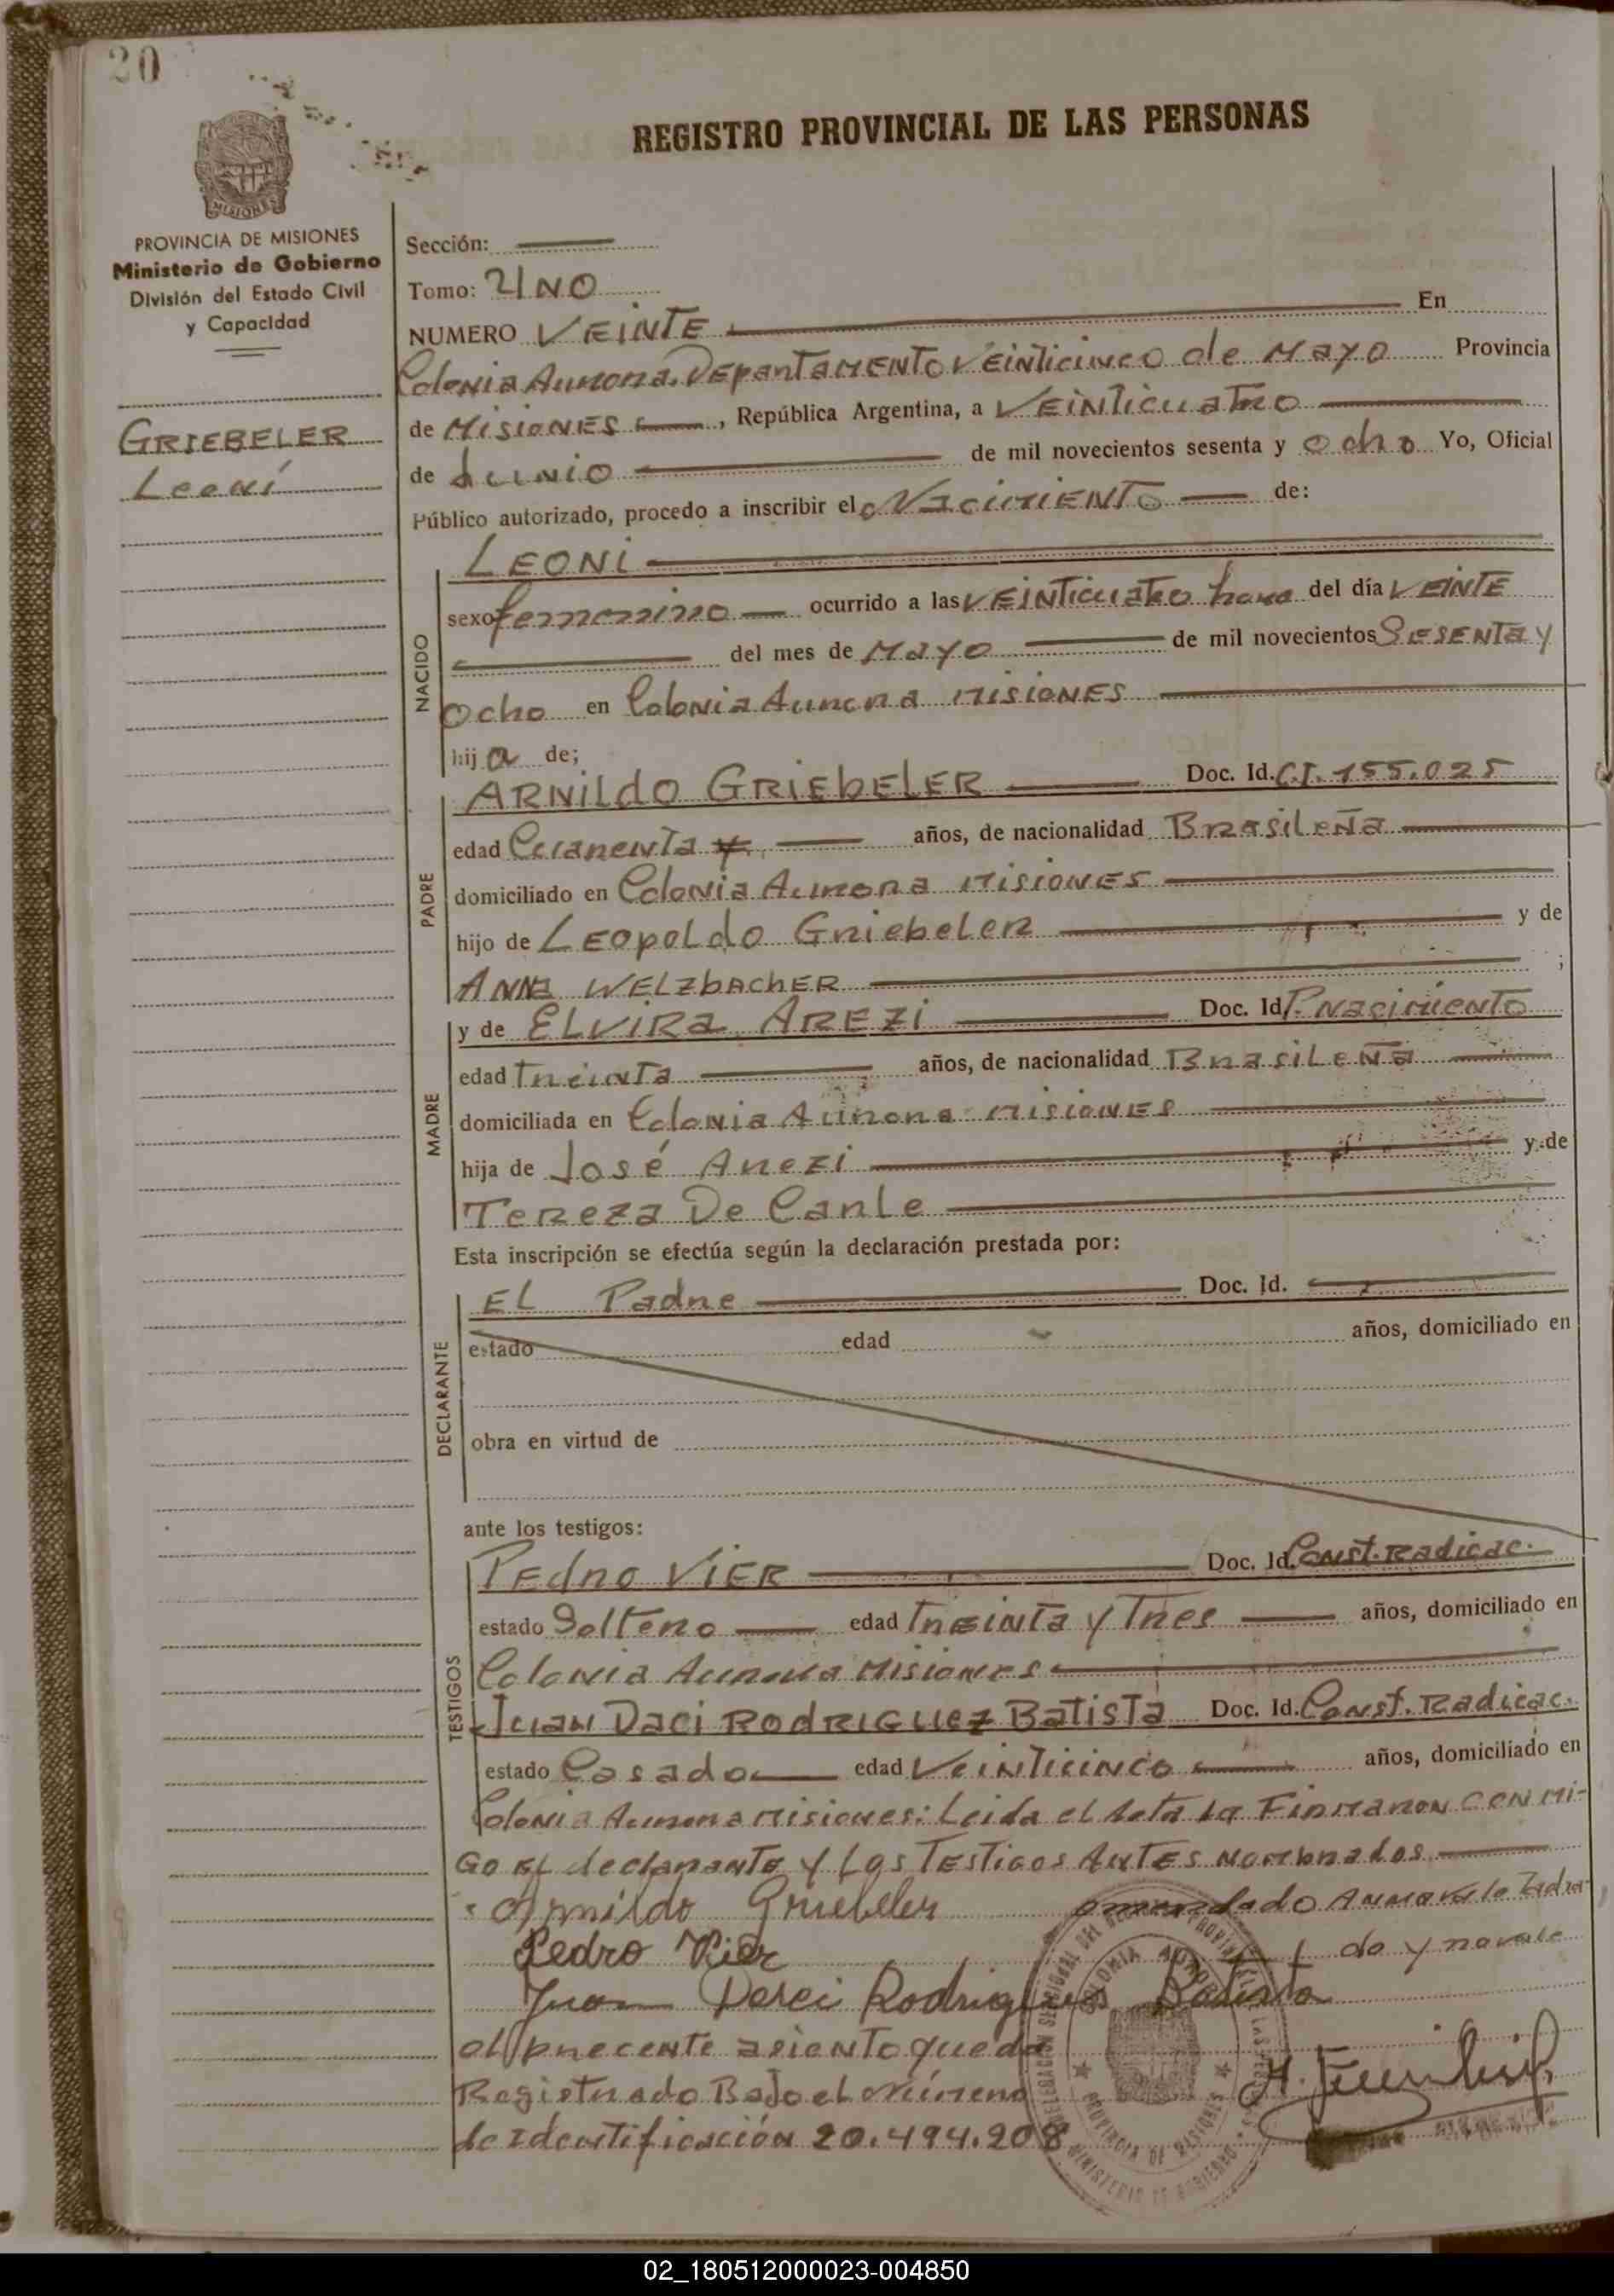 20
REGISTRO PROVINCIAL DE LAS PERSONAS
MISIONES
PROVINCIA DE MISIONES
Ministerio de Gobierno
División del Estado Civil
y Capacidad
GRIEBELER
Leoní
Sección:
Tomo: UNO
NUMERO VEINTE En
Colonia Aurora. Departamento Veinticinco de Mayo Provincia
de Misiones, República Argentina, a Veinticuatro
de Junio de mil novecientos sesenta y ocho Yo, Oficial
Público autorizado, procedo a inscribir el Nacimiento de:
NACIDO
LEONI
sexo femenino ocurrido a las veinticuatro hora del día VEINTE
del mes de Mayo de mil novecientos Sesenta y
Ocho en Colonia Aurora Misiones
hija de;
PADRE
ARNildO GRIEbELER Doc. Id. C.I. 155.025
edad Cuarenta años, de nacionalidad Brasileña
domiciliado en Colonia Aurora Misiones
hijo de Leopoldo Griebeler y de
Anna WELZbACHER ;
MADRE
y de ELVIRA AREZI Doc. Id P. Nacimiento
edad Treinta años, de nacionalidad Brasileña
domiciliada en Colonia Aurora Misiones
hija de José Arezi y de
Tereza De Carle
Esta inscripción se efectúa según la declaración prestada por:
DECLARANTE
EL Padre Doc. Id.
estado edad años, domiciliado en
obra en virtud de
ante los testigos:
TESTIGOS
Pedro VIER Doc. Id. Const. Radicac.
estado Soltero edad Treinta y Tres años, domiciliado en
Colonia Aurora Misiones
Juan Daci Rodriguez Batista Doc. Id. Const. Radicac.
estado Casado edad Veinticinco años, domiciliado en
Colonia Aurora Misiones: Leida el Acta la Firmaron con mi-
go el declarante y los Testigos Antes Nombrados
Arnildo Griebeler
Pedro Vier do y no vale
Juan Derci Rodrigues Batista
el precente asiento queda
Registrado Bajo el número
de Identificación 20.494.208
COLONIA AURORA
PROVINCIA DE MISIONES
MINISTERIO DE GOBIERNO
02_180512000023-004850